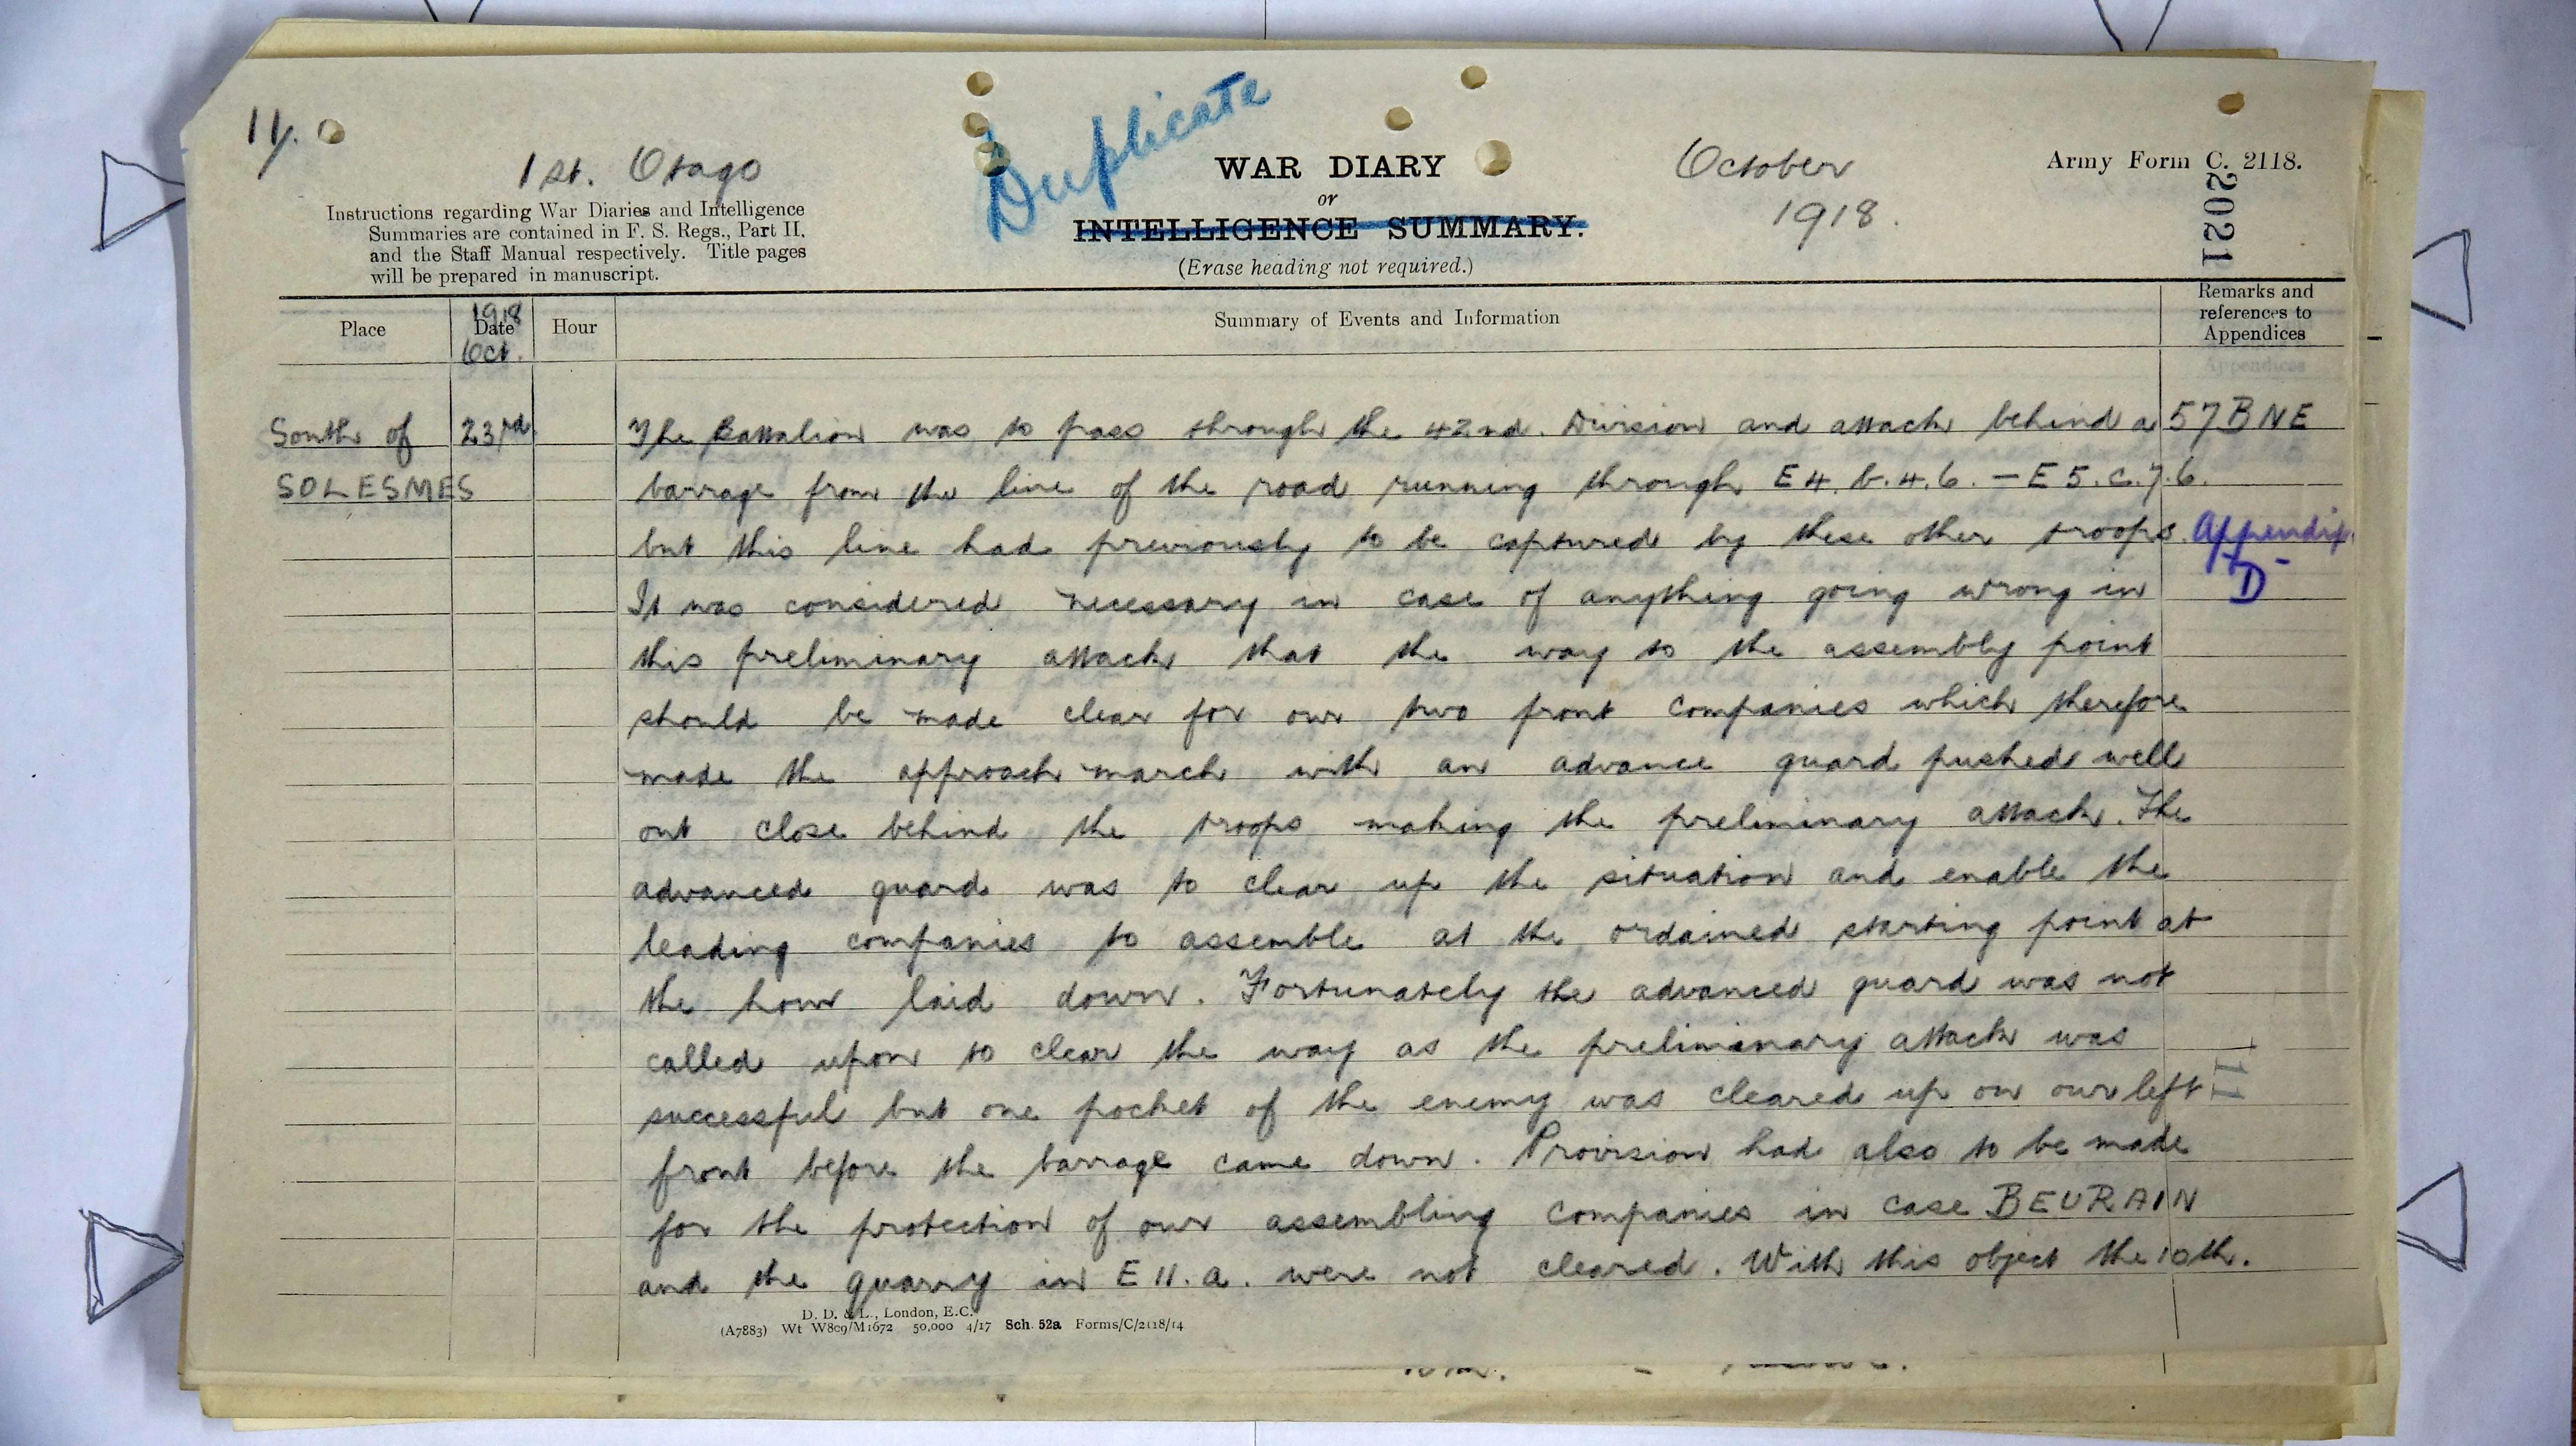 11.
1st. Otago
Duplicate
WAR DIARY
or
INTELLIGENCE SUMMARY.
(Erase heading not required.)
October
1918.
Army Form C. 2118.
2021
Instructions regarding War Diaries and Intelligence
Summaries are contained in F. S. Regs., Part II.
and the Staff Manual respectively. Title pages
will be prepared in manuscript.
Place
1918
Date
Oct.
Hour
Summary of Events and Information
Remarks and
references to
Appendices
South of 23rd The Battalion was to pass through the 42nd. Division and attack behind a 57BNE
SOLESMES barrage from the line of the road running through E4.b.4.6. – E5.c.7.6.
but this line had previously to be captured by these other troops. Appendix
D
It was considered necessary in case of anything going wrong in
this preliminary attack that the way to the assembly point
should be made clear for our two front companies which therefore
made the approach march with an advance guard pushed well
out close behind the troops making the preliminary attack. The
advanced guard was to clear up the situation and enable the
leading companies to assemble at the ordained starting point at
the hour laid down. Fortunately the advanced guard was not
called upon to clear the way as the preliminary attack was
successful but one pocket of the enemy was cleared up on our left
front before the barrage came down. Provision had also to be made
for the protection of our assembling companies in case BEURAIN
and the quarry in E11.a. were not cleared. With this object the 10th.
11
D. D. & L., London, E.C.
(A7883) Wt W8c9/M1672 50,000 4/17 Sch. 52a Forms/C/2118/14